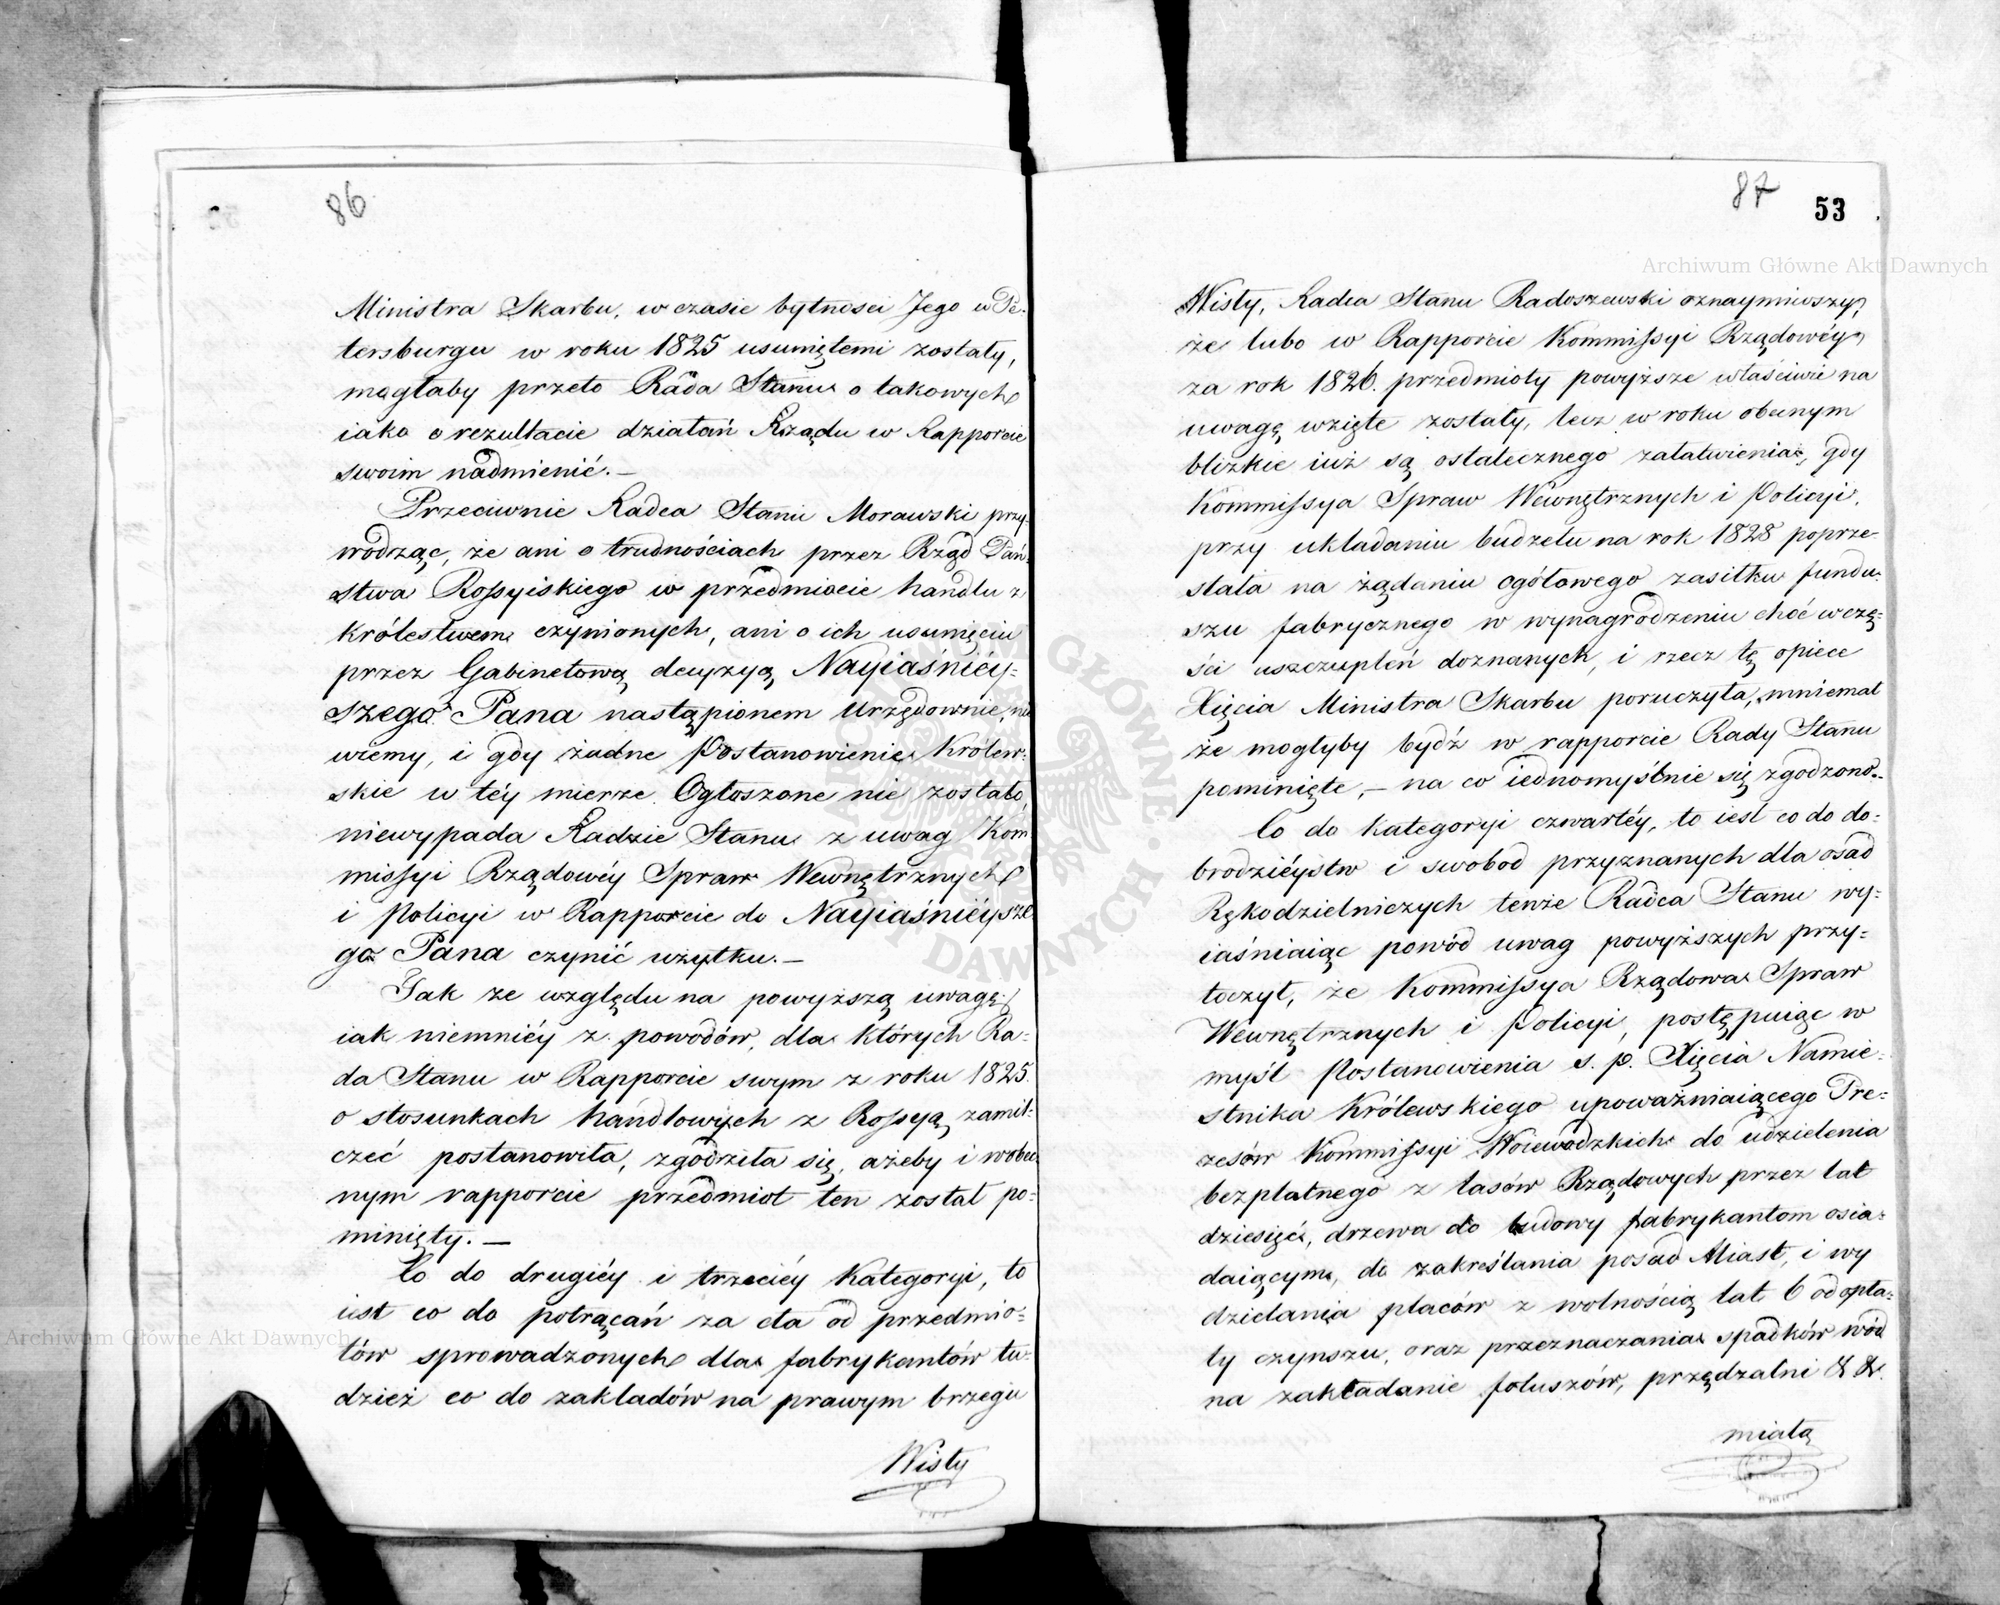 86
Ministra Skarbu, w czasie bytnosci Jego w Pe-
tersburgu w roku 1825 usuniętemi zostały,
mogłaby przeto Rada Stanu o takowych
iako o rezultacie działań Rządu w Rapporcie
swoim nadmienić.—
Przeciwnie Radca Stanu Morawski przy-
wodząc, że ani o trudnościach przez Rząd Pań-
stwa Rossyiskiego w przedmiocie handlu z
królestwem czynionych, ani o ich usunięciu
przez Gabinetową decyzyą Nayiaśnićy-
szego Pana nastąpionem Urzędownie, nie
wiemy, i gdy żadne Postanowienie Królew-
skie w téy mierze Ogłoszone nie zostało,
niewypada Radzie Stanu z uwag Kom-
missyi Rządowéy Spraw Wewnętrznych
i Policyi w Rapporcie do Nayiaśniéysze-
go Pana czynić użytku.—
Jak ze względu na powyższą uwagę,
iak niemniéy z powodów, dla których Ra-
da Stanu w Rapporcie swym z roku 1825.
o stosunkach handlowych z Rossyą zamil-
czeć postanowiła, zgodziła się, ażeby i w obec-
nym rapporcie przedmiot ten został po-
minięty.—
Co do drugiéy i trzeciéy Kategoryi, to
iest co do potrącań za cła od przedmio-
tów sprowadzonych dla fabrykantów tu-
dzież co do zakładów na prawym brzegu
Wisły
87
53
Archiwum Główne Akt Dawnych
Wisły, Radca Stanu Radoszewski oznaymiwszy,
że lubo w Rapporcie Kommissyi Rządowéy
za rok 1826. przedmioty powyższe właściwie na
uwagę wzięte zostały, lecz w roku obecnym
blizkie iuż są ostatecznego załatwienia, gdy
Kommissya Spraw Wewnętrznych i Policyi,
przy układaniu budżetu na rok 1828 poprze-
stała na żądaniu ogółowego zasiłku fundu-
szu fabrycznego w wynagrodzeniu choć w czę-
ści uszczupleń doznanych, i rzecz tę opiece
Xięcia Ministra Skarbu poruczyła, mniemał
że mogłyby bydź w rapporcie Rady Stanu
pominięte,— na co iednomyślnie się zgodzono.—
Co do Kategoryi czwartéy, to iest co do do-
brodziéystw i swobod przyznanych dla osad
Rękodzielniczych tenże Radca Stanu wy-
iaśniaiąc powód uwag powyższych przy-
toczył, że Kommissya Rządowa Spraw
Wewnętrznych i Policyi, postępuiąc w
myśl Postanowienia s. p. Xięcia Namie-
stnika Królewskiego upoważniaiącego Pre-
zesów Kommissyi Woiewodzkich do udzielenia
bezpłatnego z lasów Rządowych przez lat
dziesięć, drzewa do budowy fabrykantom osia-
daiącym, do zakreślania posad Miast, i wy
dzielania placów z wolnością lat 6 od opła-
ty czynszu, oraz przeznaczania spadków wód
na zakładanie foluszów, przędzalni & &.
miała
Archiwum Główne Akt Dawnych
ARCHIWUM GŁÓWNE AKT DAWNYCH